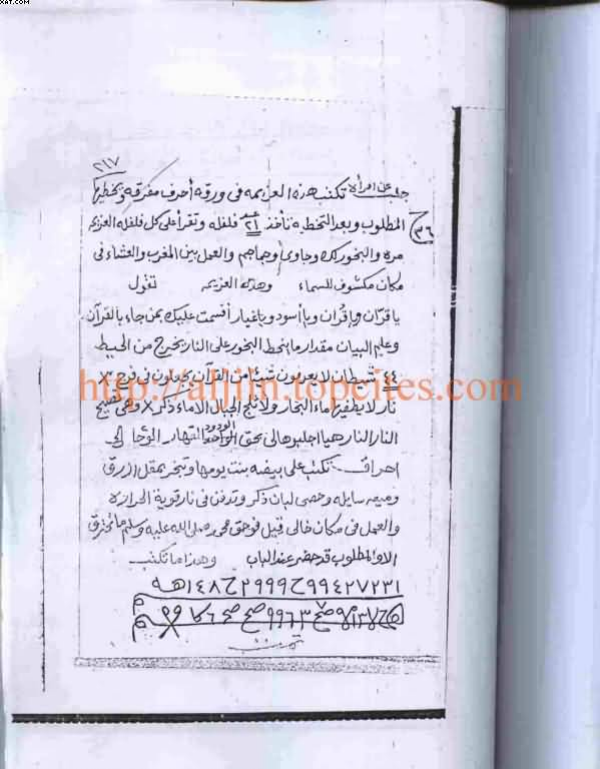 XAT.COM
٢١٧
جلب عن امرأة تكتب هذه العزيمه فى ورقه أحرف مفرقه وتخطيها
٣٦ المطلوب وبعد التخطيه تأخذ ٢١ عدد فلفله وتقرأ على كل فلفله العزيمه
مره والبخور لك وجاوى وجماجم والعمل بين المغرب والعشاء فى
مكان مكشوف للسماء وهذه العزيمه تقول
ياقران ويا قران ويا أسود وياغيار أقسمت عليك بمن جاء بالقرآن
وعلم البيان مقدار ما ينحط البخور على النار يخرج من الحيط
٤٤ شيطان لا يعرفون شيئا من القرآن يجعلون فى فرج
نار لا يطفيها ماء البخار ولا ثلج الجبال الا ماء ذكر X وهى تصيح
النار النار هيا اجلبوها لى بحق الودود القهار
احراق تكتب على بيضه بنت يومها وتبخر بمقل أزرق
وميعه سايله وحصى لبان ذكر وتدفن فى نار قوية الحراره
والعمل فى مكان خالى قيل فوحق محمد صلى الله عليه وسلم ما تحترق
الا والمطلوب قد حضر عند الباب وهذا ما تكتب
http://aljinn.topcities.com